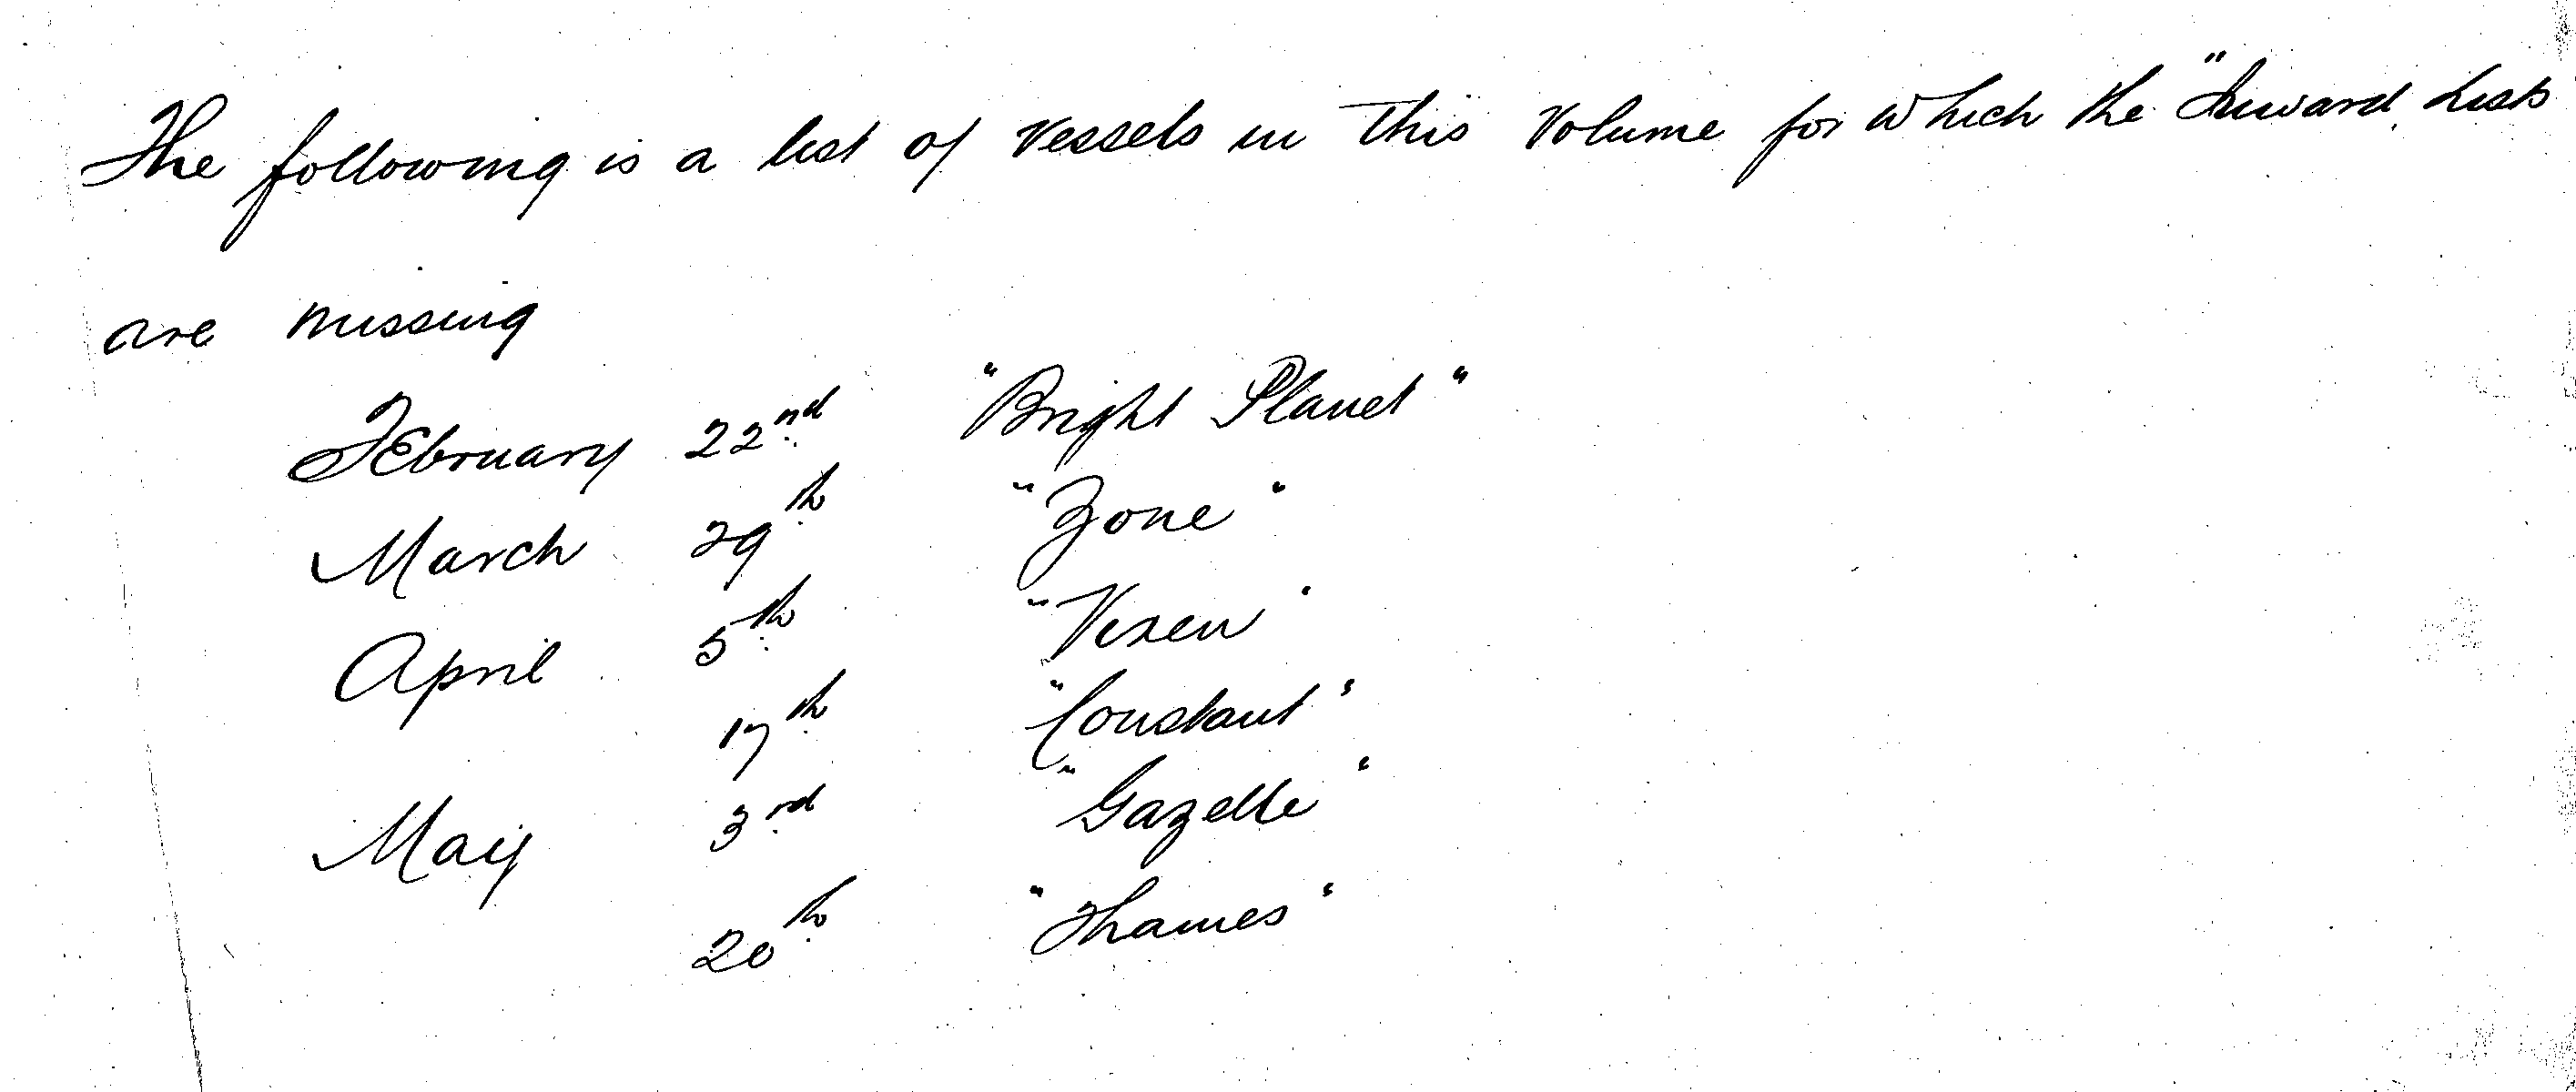 The following is a list of Vessels in this Volume for which the "Inward Lists
are missing
February 22nd "Bright Planet"
March 29th "Zone"
April 5th "Vixen"
17th "Constant"
May 3rd "Gazelle"
20th "Thames"